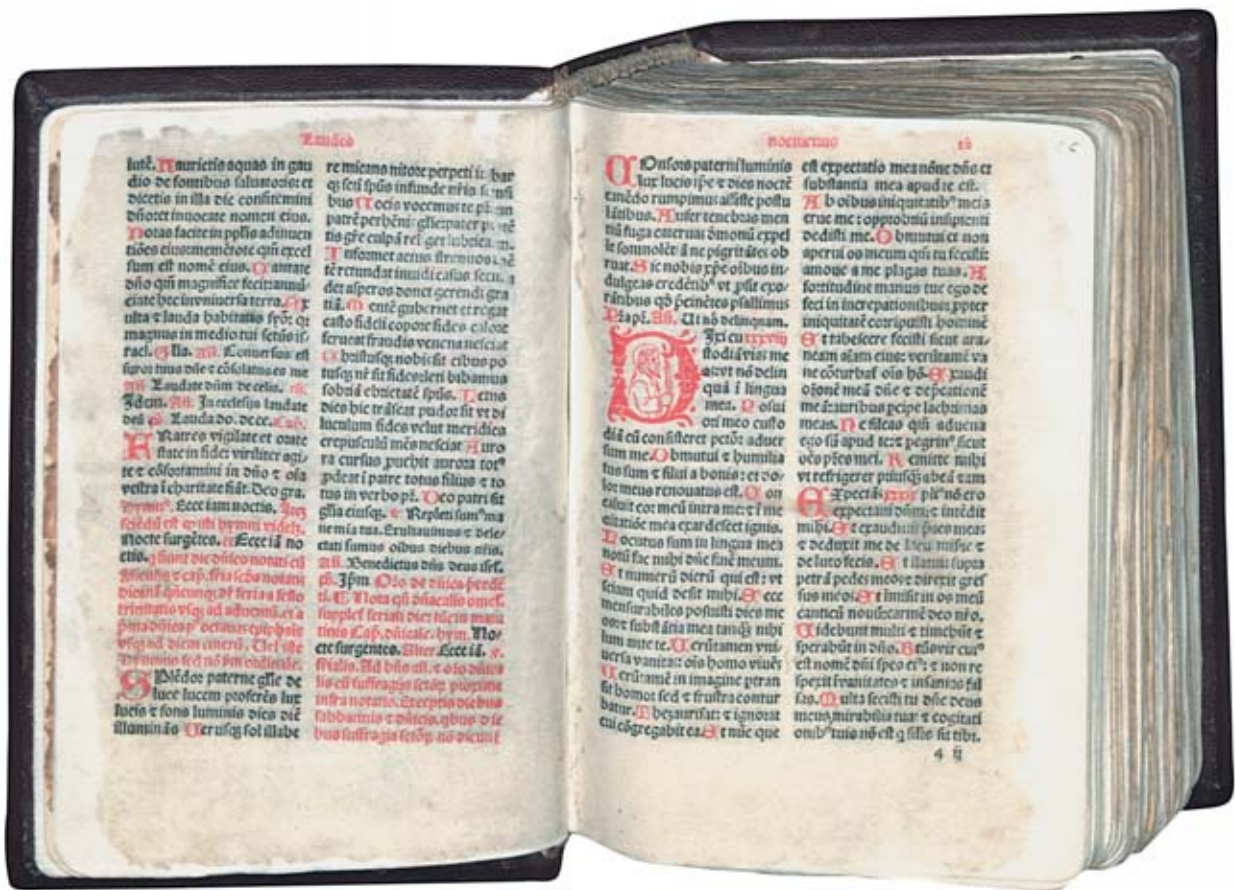 Laudes
lutẽ. Haurietis aquas in gau
dio de fontibus saluatoris: et
dicetis in illa die confitemini
dño et inuocate nomen eius.
Notas facite in pplis adinuen
tiões eius: memẽtote qm̃ excel
sum est nomẽ eius. Cantate
dño qm̃ magnifice fecit: annũ
ciate hec in vniuersa terra. Ex
ulta et lauda habitatio syõn: qz
magnus in medio tui sctũs is
rael. Glia. Añ. Conuersus est
furor tuus dñe et cõsolatus es me
Añ. Laudate dñm de celis.
Idem. Añ. In ecclesijs laudate
deũ Lauda. do. dece. Cap.
FRatres vigilate et orate
state in fide: viriliter agi
te et cõfortamini in dño et oĩa
vestra ĩ charitate fiãt. Deo gra.
Hymn9. Ecce iam noctis.
sciẽdũ est qz isti hymni videlz.
Nocte surgẽtes. Ecce iã no
ctis.
trinitatis vsqz ad aduentũ. et a
vsqz ad diem cinerũ. Vel iste
hymnus sed nõ
SPlẽdor paterne glie de
luce lucem proferẽs lux
lucis et fons luminis dies diẽ
illuminãs Verusqz sol illabe
re micans nitore perpeti iubar
qz scti spũs infunde nr̃is sensi
bus Uocis vocemus te patrem
patrẽ perhẽnis glie: pater potẽ
tis gr̃e culpã releget lubricam.
Informet actus strenuos dẽ
tẽ retundat inuidi casus secũ
det asperos donet gerendi gra
tiã. Mentẽ gubernet et regat
casto fideli corpore fides calore
ferueat fraudis venena nesciat
Christusqz nobis sit cibus po
tusqz nr̃ sit fides: leti bibamus
sobriã ebrietatẽ spũs. Letus
dies hic trãseat pudor sit vt di
luculum fides velut meridies
crepusculũ mẽs nesciat Auro
ra cursus puehit aurora tot9
pdeat ĩ patre totus filius et to
tus in verbo pr̃. Deo patri sit
glia eiusqz. Repleti sum9 ma
ne mĩa tua. Exultauimus et dele
ctati sumus oĩbus diebus nr̃is.
Añ. Benedictus dñs deus isrl.
ps. Ipm̃.
Nota
supplet
tinis Cap. dñicale. hym. No
cte surgentes. Alter. Ecce iã.
Ad bñs añ. et
lis cũ suffragijs sctõrz proxime
infra notatis. Exceptis diebus
sabbatinis et dñicis. qbus die
bus suffragia sctõrz nõ dicunt
nocturnus
COnsors paterni luminis
lux lucis ipe et dies noctẽ
canẽdo rumpimus assiste postu
lãtibus. Aufer tenebras men
tiũ fuga cateruas demonũ expel
le somnolẽtiã ne pigritãtes ob
ruat. Sic nobis xpe oĩbus in
dulgeas credẽtib9 vt psit exo
rãtibus qd pcinẽtes psallimus
Pr̃a pr̃. Añ. Ut nõ delinquam.
DIxi cu xxxviij
stodiã vias me
as: vt nõ delin
quã ĩ lingua
mea. Posui
ori meo custo
diã cũ consisteret pctõr aduer
sum me. Obmutui et humilia
tus sum et silui a bonis: et do
lor meus renouatus est. Con
caluit cor meũ intra me: et ĩ me
ditatiõe mea exardescet ignis.
Locutus sum in lingua mea
notũ fac mihi dñe finẽ meum.
Et numerũ dierũ qui est: vt
sciam quid desit mihi. Ecce
mensurabiles posuisti dies me
os: et substãtia mea tanqz nihi
lum ante te. Uerũtamen vni
uersa vanitas: oĩs homo viuẽs
Uerũtamẽ in imagine ptran
sit homo: sed et frustra contur
batur. Thezaurisat: et ignorat
cui cõgregabit ea. Et nũc que
est expectatio mea nõne dñs et
substantia mea apud te est.
Ab oĩbus iniquitatib9 meis
erue me: opprobriũ insipienti
dedisti me. Obmutui et non
aperui os meum qm̃ tu fecisti:
amoue a me plagas tuas. A
fortitudine manus tue ego de
feci in increpationibus: ppter
iniquitatẽ corripuisti hominẽ
Et tabescere fecisti sicut ara
neam aĩam eius: verũtamẽ va
ne cõturbat oĩs hõ. Exaudi
orõnẽ meã dñe et dp̃cationẽ
meã: auribus pcipe lachrimas
meas. Ne sileas qm̃ aduena
ego sũ apud te: et pegrin9 sicut
oẽs pr̃es mei. Remitte mihi
vt refrigerer priusqz abeã et am
EXpectãs xxxix pl9 nõ ero
expectaui dñm: et intẽdit
mihi. Et exaudiuit pces meas
et deduxit me de lacu misr̃ie et
de luto fecis. Et statuit supra
petrã pedes meos: et direxit gres
sus meos. Et ĩmisit in os meũ
canticũ nouũ: carmẽ deo nr̃o.
Uidebunt multi et timebũt et
sperabũt in dño. Btũs vir cui9
est nomẽ dñi spes ei9: et non re
spexit ĩ vanitates et insanias fal
sas. Multa fecisti tu dñe deus
meus mirabilia tua: et cogitati
onib9 tuis nõ est q silis sit tibi.